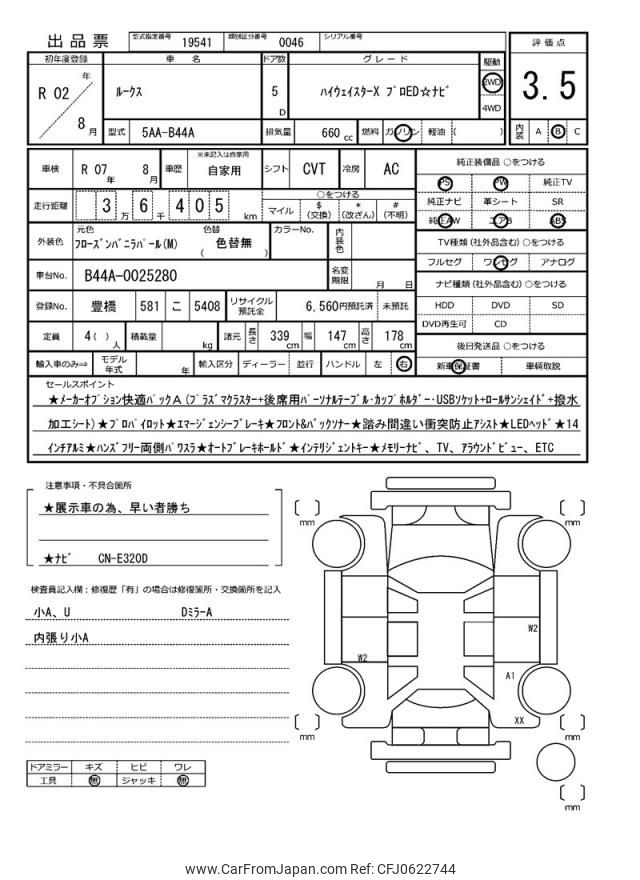 出品票 型式指定番号 19541 類別区分番号 0046 シリアル番号
初年度登録 車名 ドア数 グレード 駆動 評価点
R 02 年 8 月 ルークス 5 D ハイウェイスターX プロED☆ナビ 2WD 4WD 3.5
型式 5AA-B44A 排気量 660 cc 燃料 ガソリン 軽油 ( ) 内装 A B C
車検 R 07 年 8 月 車歴 ※未記入は自家用 自家用 シフト CVT 冷房 AC 純正装備品 ○をつける
PS PW 純正TV
走行距離 3 万 6 千 4 0 5 km ○をつける
マイル $(交換) *(改ざん) #(不明) 純正ナビ 革シート SR
純正AW エアB ABS
外装色 元色 フローズンバニラパール(M) 色替 色替無 ( ) カラーNo. 内装色
TV種類 (社外品含む) ○をつける
フルセグ ワンセグ アナログ
車台No. B44A-0025280 名変期限 月 日
ナビ種類 (社外品含む) ○をつける
登録No. 豊橋 581 こ 5408 リサイクル預託金 6,560円預託済 未預託
HDD DVD SD
DVD再生可 CD
定員 4( ) 人 積載量 kg 諸元 長さ 339 cm 幅 147 cm 高さ 178 cm
後日発送品 ○をつける
輸入車のみ⇒ モデル年式 年 輸入区分 ディーラー 並行 ハンドル 左 右 新車保証書 車輌取説
セールスポイント
★メーカーオプション快適パックA(プラズマクラスター+後席用パーソナルテーブル・カップホルダー・USBソケット+ロールサンシェイド+撥水
加工シート)★プロパイロット★エマージェンシーブレーキ★フロント&バックソナー★踏み間違い衝突防止アシスト★LEDヘッド★14
インチアルミ★ハンズフリー両側パワスラ★オートブレーキホールド★インテリジェントキー★メモリーナビ、TV、アラウンドビュー、ETC
注意事項・不具合箇所
★展示車の為、早い者勝ち
★ナビ CN-E320D
検査員記入欄:修復歴「有」の場合は修復箇所・交換箇所を記入
小A、U DミラーA
内張り小A
ドアミラー キズ ヒビ ワレ
工具 無 ジャッキ 無
mm
mm
W2
W2
A1
XX
mm
mm
mm
www.CarFromJapan.com Ref: CFJ0622744